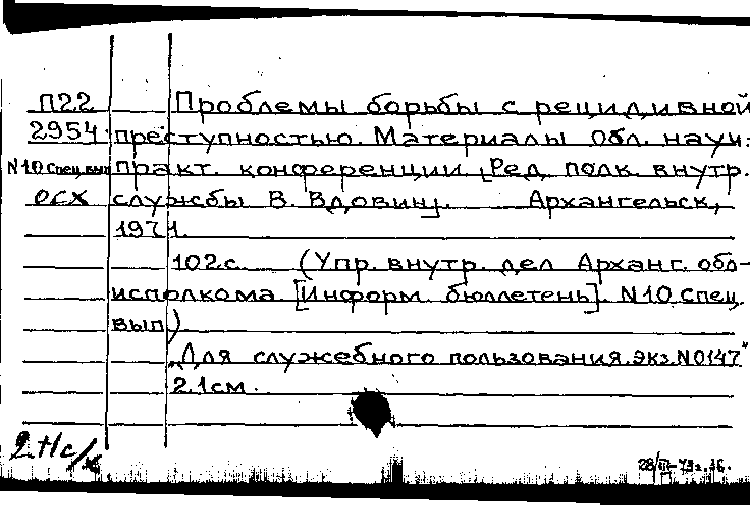 П22 Проблемы борьбы с рецидивной
2954 преступностью. Материалы обл. научн.
N10 спец. вып практ. конференции [Ред. полк. внутр.
ОСХ службы В. Вдовин]. Архангельск,
1971.
102с. (Упр. внутр. дел Арханг. обл-
исполкома [Информ. бюллетень]. N10 спец.
вып.)
„Для служебного пользования. экз. N0147"
2.1см.
2 н/с/х
28/III-79г.